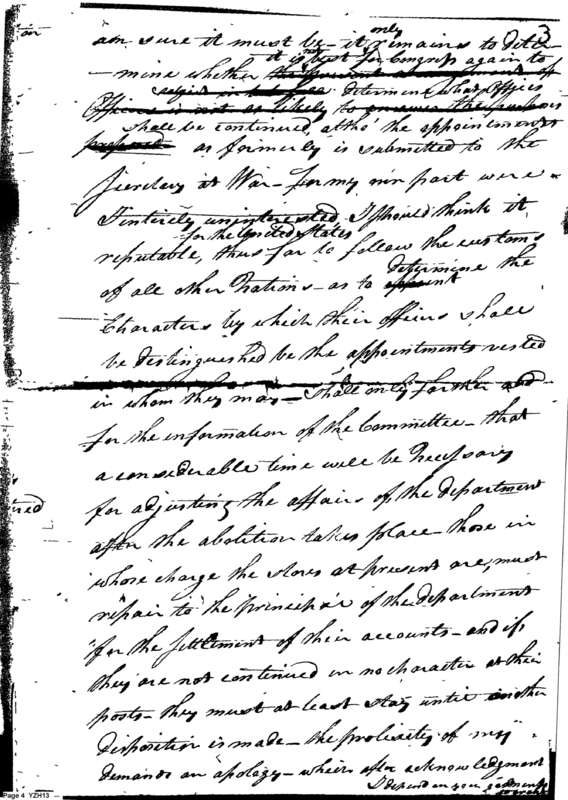 3
am sure it must be it only remains to deter
mine whether it is not best for Congress again to
determine what Offices
Office is not as likely to answer the purposes
shall be continued, altho' the appointments
proposed as formerly is submitted to the
Secretary at War – for my own part were
I intirely uninterested, I should think it
for the United States
reputable, thus far to follow the customs
of all other Nations – as to determine the
appoint
Characters by which their officers shall
be distinguished be the appointments vested
in whom they may – Shall only further add
for the information of the Committee – that
a considerable time will be Necessary
for adjusting the affairs of the department
after the abolition takes place – those in
whose charge the stores at present are, must
repair to the principal of the department
for the settlement of their accounts – and if
they are not continued in no character at their
posts – they must at least stay until another
Disposition is made – the prolixity of my
demands an apology – wherein after acknowledgment
I depend on your
Page 4 YZH13